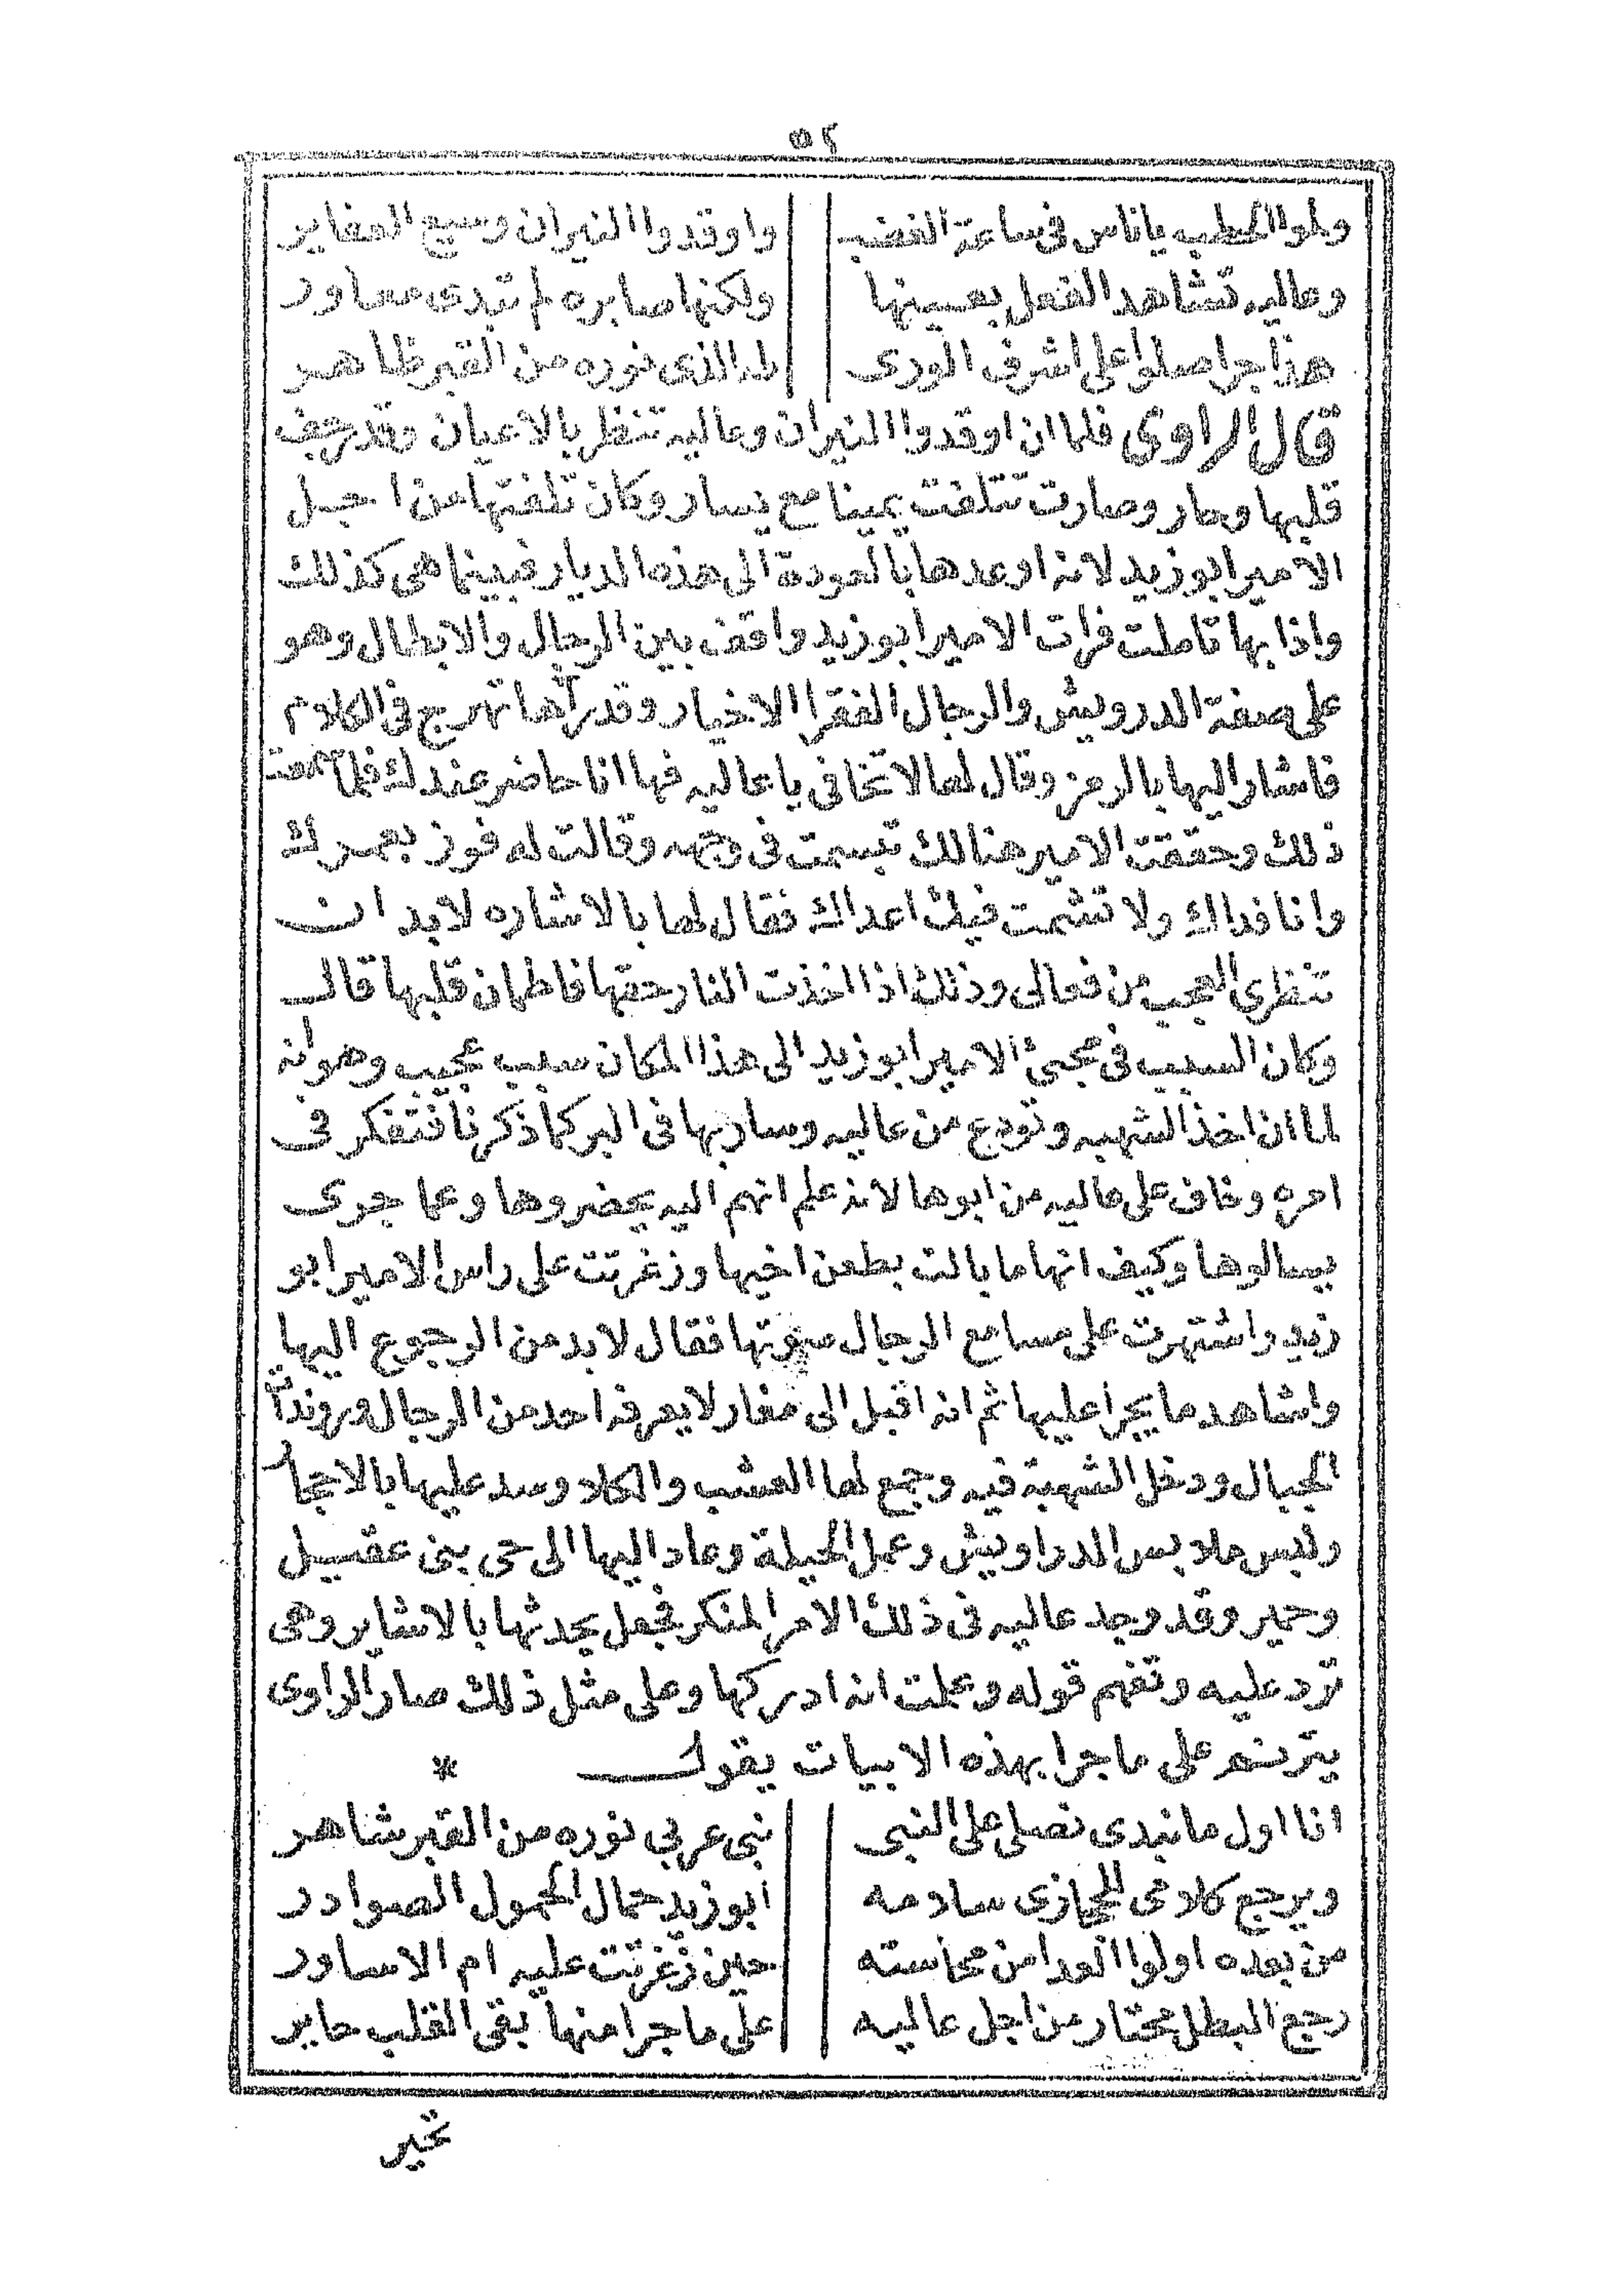 ٥٢
ولموا الحطب يا ناس فى ساعة الغضب واوقدوا النيران وسيع الحفاير
وعاليه تشاهد الفعل بعينها ولكنها صابره لم تبدى معاور
هذا جرا صلوا على اشرف الورى طه الذى نوره من القبر ظاهر
قال الراوى فلما ان اوقدوا النيران وعاليه تنظر بالاعيان وقد رجف
قلبها وحار وصارت تتلفت يمينا مع يسار وكان تلفتها من اجل
الامير ابو زيد لانه اوعدها بالعودة الى هذه الديار فبينما هى كذلك
واذا بها تاملت فرات الامير ابو زيد واقف بين الرجال والابطال وهو
على صفة الدرويش والرجال الفقرا الاخيار وقد رآها تهرج فى الكلام
فاشار اليها بالرمز وقال لها لا تخافى يا عاليه فها انا حاضر عندك فلما سمعت
ذلك وحققت الامير هنالك تبسمت فى وجهه وقالت له فوز بعمرك
وانا فداك ولا تشمت فيك اعداك فقال لها بالاشاره لابد ان
تنظرى العجب من فعالى وذلك اذا اخذت النار حقها فاطمان قلبها قال
وكان السبب فى مجئ الامير ابو زيد الى هذا المكان سبب عجيب وهو انه
لما ان اخذ الشهبه وتودع من عاليه وسار بها فى البر كما ذكرنا فتفكر فى
امره وخاف على عاليه من ابوها لانه علم انهم اليه يحضروها وعما جرى
يسالوها وكيف انها ما بالت بطعن اخيها وزغرتت على راس الامير ابو
زيد واشتهرت على مسامع الرجال صوتها فقال لابد من الرجوع اليها
واشاهد ما يجرا عليها ثم انه اقبل الى مغار لا يعرفه احد من الرجال
الجبال ودخل الشهبة فيه وجمع لها العشب والكلا وسد عليها بالاحجار
ولبس ملابس الدراويش وعمل الحيلة وعاد اليها الى حى بنى عقيل
وحمير وقد وجد عاليه فى ذلك الامر المنكر فجعل يحدثها بالاشاير وهى
ترد عليه وتفهم قوله وعلمت انه ادركها وعلى مثل ذلك صار الراوى
يترنم على ماجرا بهذه الابيات يقول *
انا اول ما نبدى نصلى على النبى نبى عربى نوره من القبر شاهر
ويرجع كلامى للحجازى سلامه ابو زيد حمال الحمول الصوادر
من بعده اولوا العدا من محاسته حين زغرتت عليه ام الاساور
رجع البطل محتار من اجل عاليه على ماجرا منها بقى القلب حاير
تحير